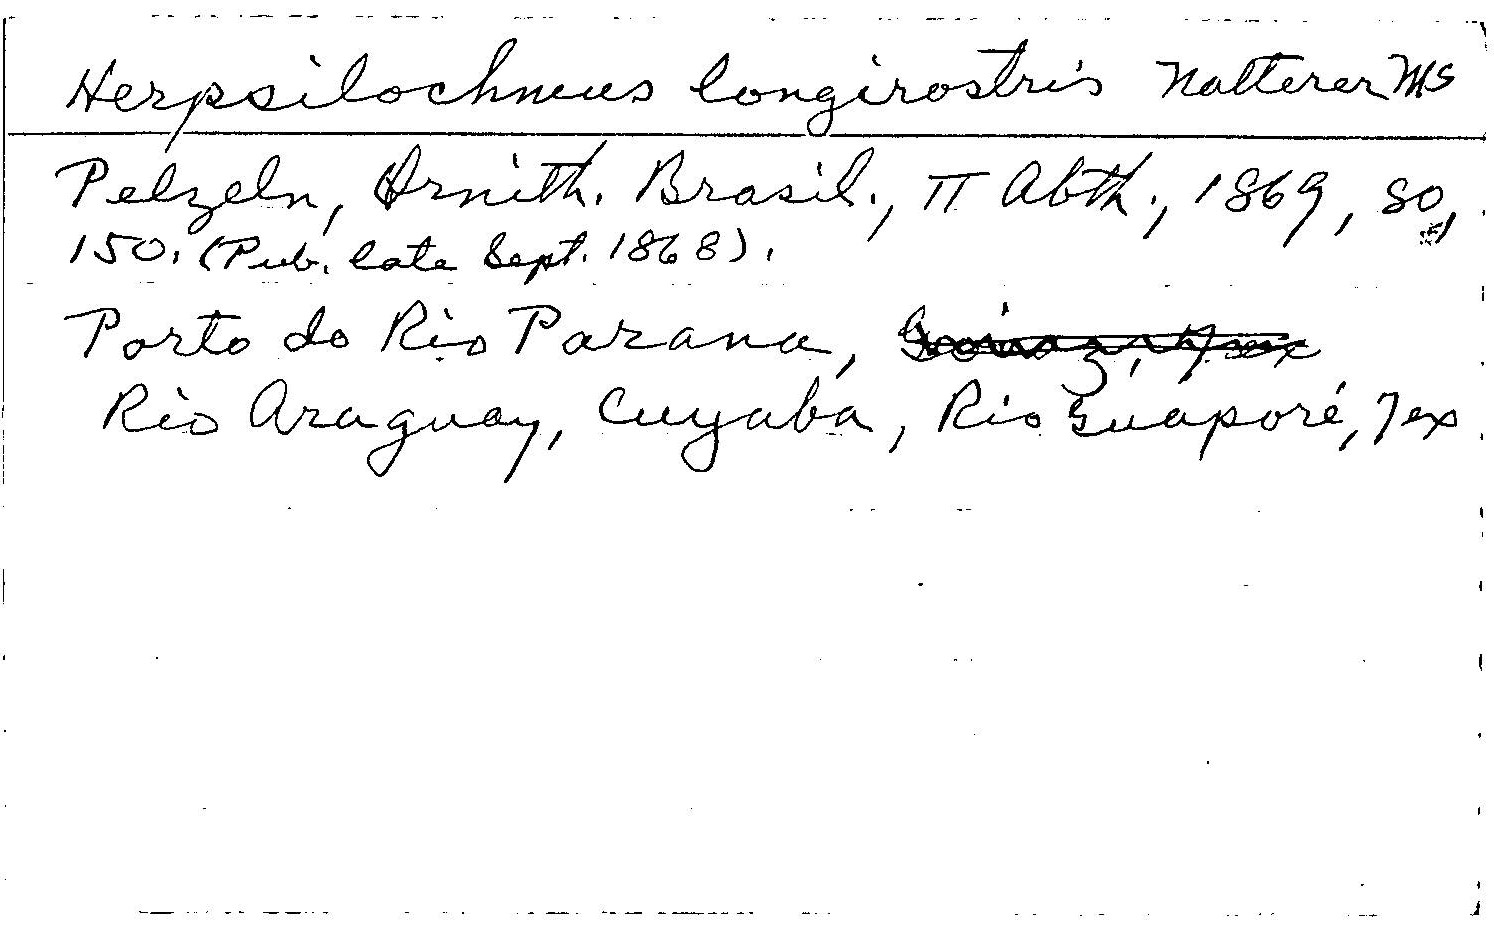 Herpsilochmus longirostris Natterer MS
Pelzeln, Ornith. Brasil., II Abth., 1869, 80,
150. (Pub. late Sept. 1868).
Porto do Rio Parana,
Rio Araguay, Cuyaba, Rio Guaporé, 7 ex